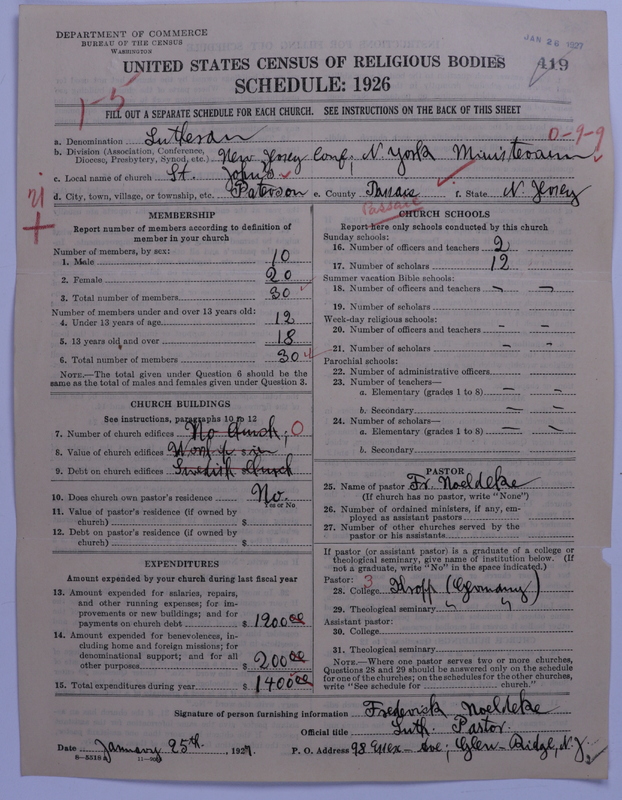 DEPARTMENT OF COMMERCE
BUREAU OF THE CENSUS
WASHINGTON
JAN 26 1927
419
UNITED STATES CENSUS OF RELIGIOUS BODIES
SCHEDULE: 1926
1-5
FILL OUT A SEPARATE SCHEDULE FOR EACH CHURCH. SEE INSTRUCTIONS ON THE BACK OF THIS SHEET
0-9-9
a. Denomination Lutheran
b. Division (Association, Conference,
Diocese, Presbytery, Synod, etc.) New Jersey Conf, N York Ministerium
c. Local name of church St. John's
d. City, town, village, or township, etc. Paterson e. County Passaic f. State N. Jersey
Passaic
MEMBERSHIP
Report number of members according to definition of
member in your church
Number of members, by sex:
1. Male 10
2. Female 20
3. Total number of members 30
Number of members under and over 13 years old:
4. Under 13 years of age 12
5. 13 years old and over 18
6. Total number of members 30
NOTE.—The total given under Question 6 should be
the same as the total of males and females given under Question 3.
CHURCH BUILDINGS
See instructions, paragraphs 10 to 12
7. Number of church edifices No Church; 0
8. Value of church edifices Worship in
9. Debt on church edifices Swedish Church
10. Does church own pastor's residence No.
Yes or No
11. Value of pastor's residence (if owned by
church) $
12. Debt on pastor's residence (if owned by
church) $
EXPENDITURES
Amount expended by your church during last fiscal year
13. Amount expended for salaries, repairs,
and other running expenses; for im-
provements or new buildings; and for
payments on church debt $ 1200 00
14. Amount expended for benevolences, in-
cluding home and foreign missions; for
denominational support; and for all
other purposes $ 200 00
15. Total expenditures during year $ 1400 00
CHURCH SCHOOLS
Report here only schools conducted by this church
Sunday schools:
16. Number of officers and teachers 2
17. Number of scholars 12
Summer vacation Bible schools:
18. Number of officers and teachers
19. Number of scholars
Week-day religious schools:
20. Number of officers and teachers - -
21. Number of scholars - -
Parochial schools:
22. Number of administrative officers
23. Number of teachers—
a. Elementary (grades 1 to 8) — —
b. Secondary — —
24. Number of scholars—
a. Elementary (grades 1 to 8) — —
b. Secondary
PASTOR
25. Name of pastor Fr. Noeldeke
(If church has no pastor, write "None")
26. Number of ordained ministers, if any, em-
ployed as assistant pastors
27. Number of other churches served by the
pastor or his assistants
If pastor (or assistant pastor) is a graduate of a college or
theological seminary, give name of institution below. (If
not a graduate, write "No" in the space indicated.)
Pastor: 3
28. College Kropp (Germany)
29. Theological seminary " "
Assistant pastor:
30. College
31. Theological seminary
NOTE.—Where one pastor serves two or more churches,
Questions 28 and 29 should be answered only on the schedule
for one of the churches; on the schedules for the other churches,
write "See schedule for church."
Signature of person furnishing information Frederick Noeldeke
Official title Luth. Pastor.
Date January 25th, 1927. P. O. Address 98 Essex - Ave; Glen-Ridge, N.J.
8-5518